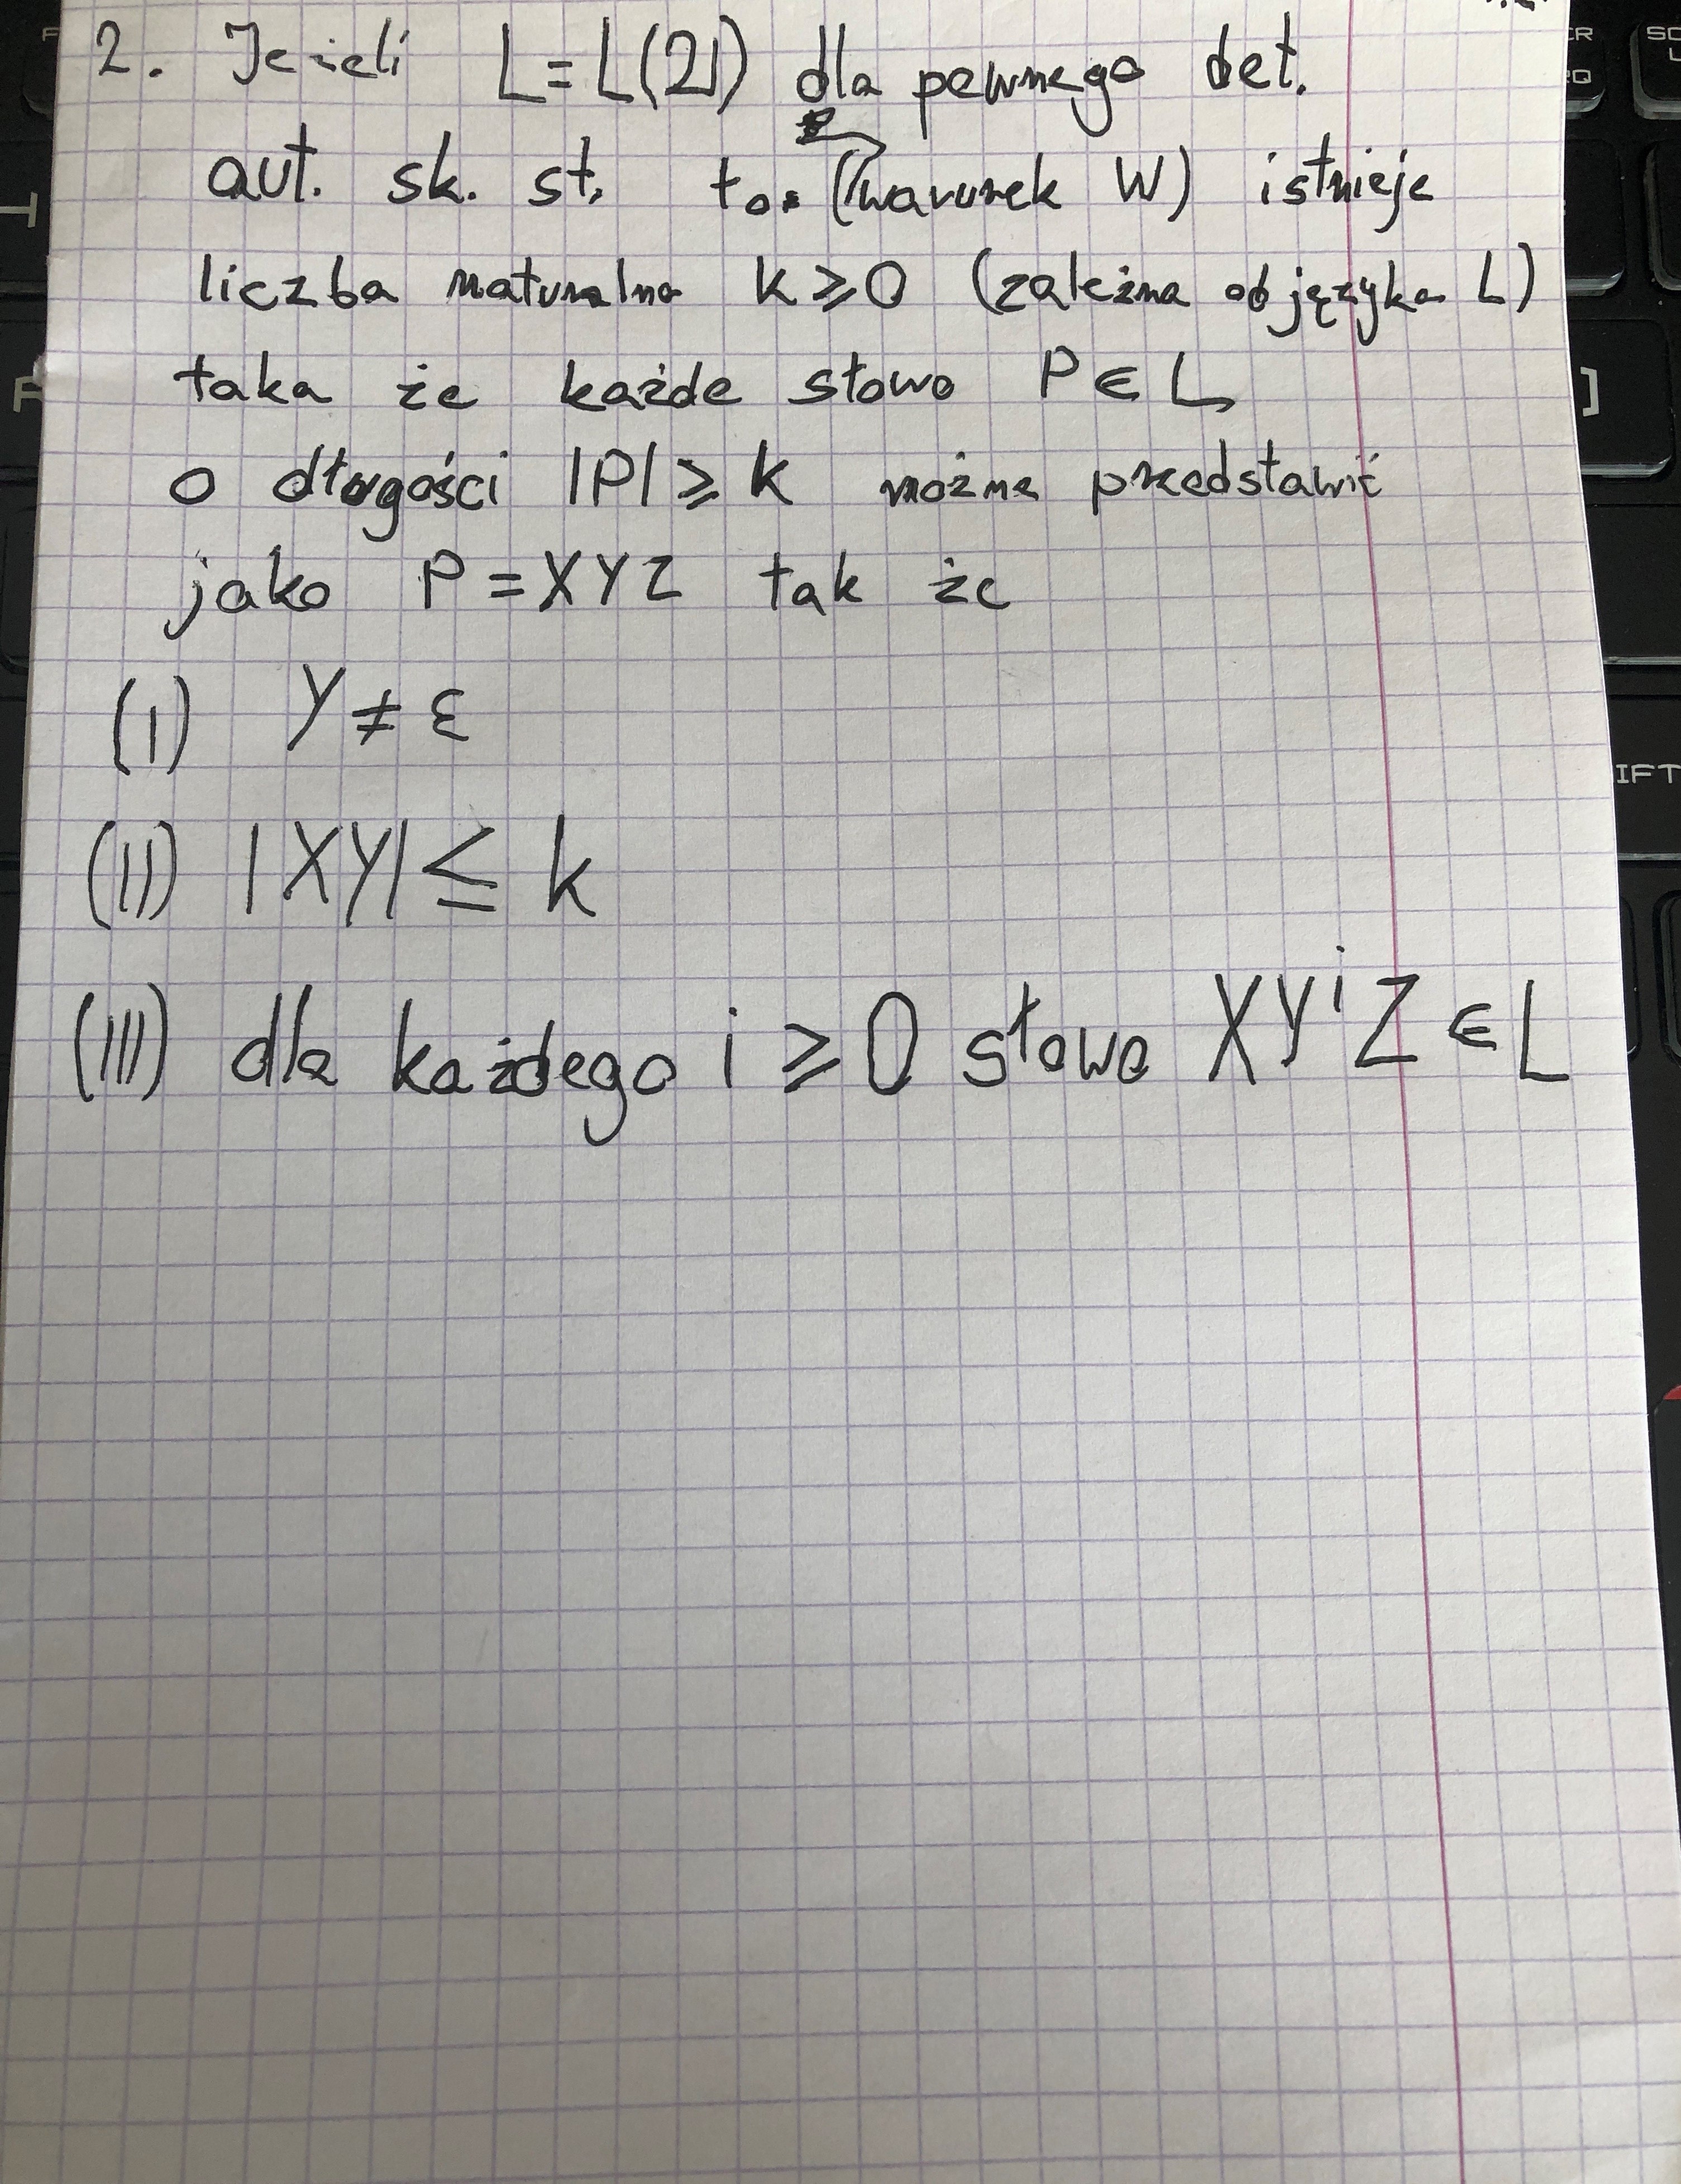 2. Jeżeli L = L(𝔄) dla pewnego det.
aut. sk. st. to: (warunek W) istnieje
liczba naturalna k ≥ 0 (zależna od języka L)
taka że każde słowo P ∈ L
o długości |P| ≥ k można przedstawić
jako P = XYZ tak że
(I) Y ≠ ε
(II) |XY| ≤ k
(III) dla każdego i ≥ 0 słowo XYⁱZ ∈ L
]
IFT